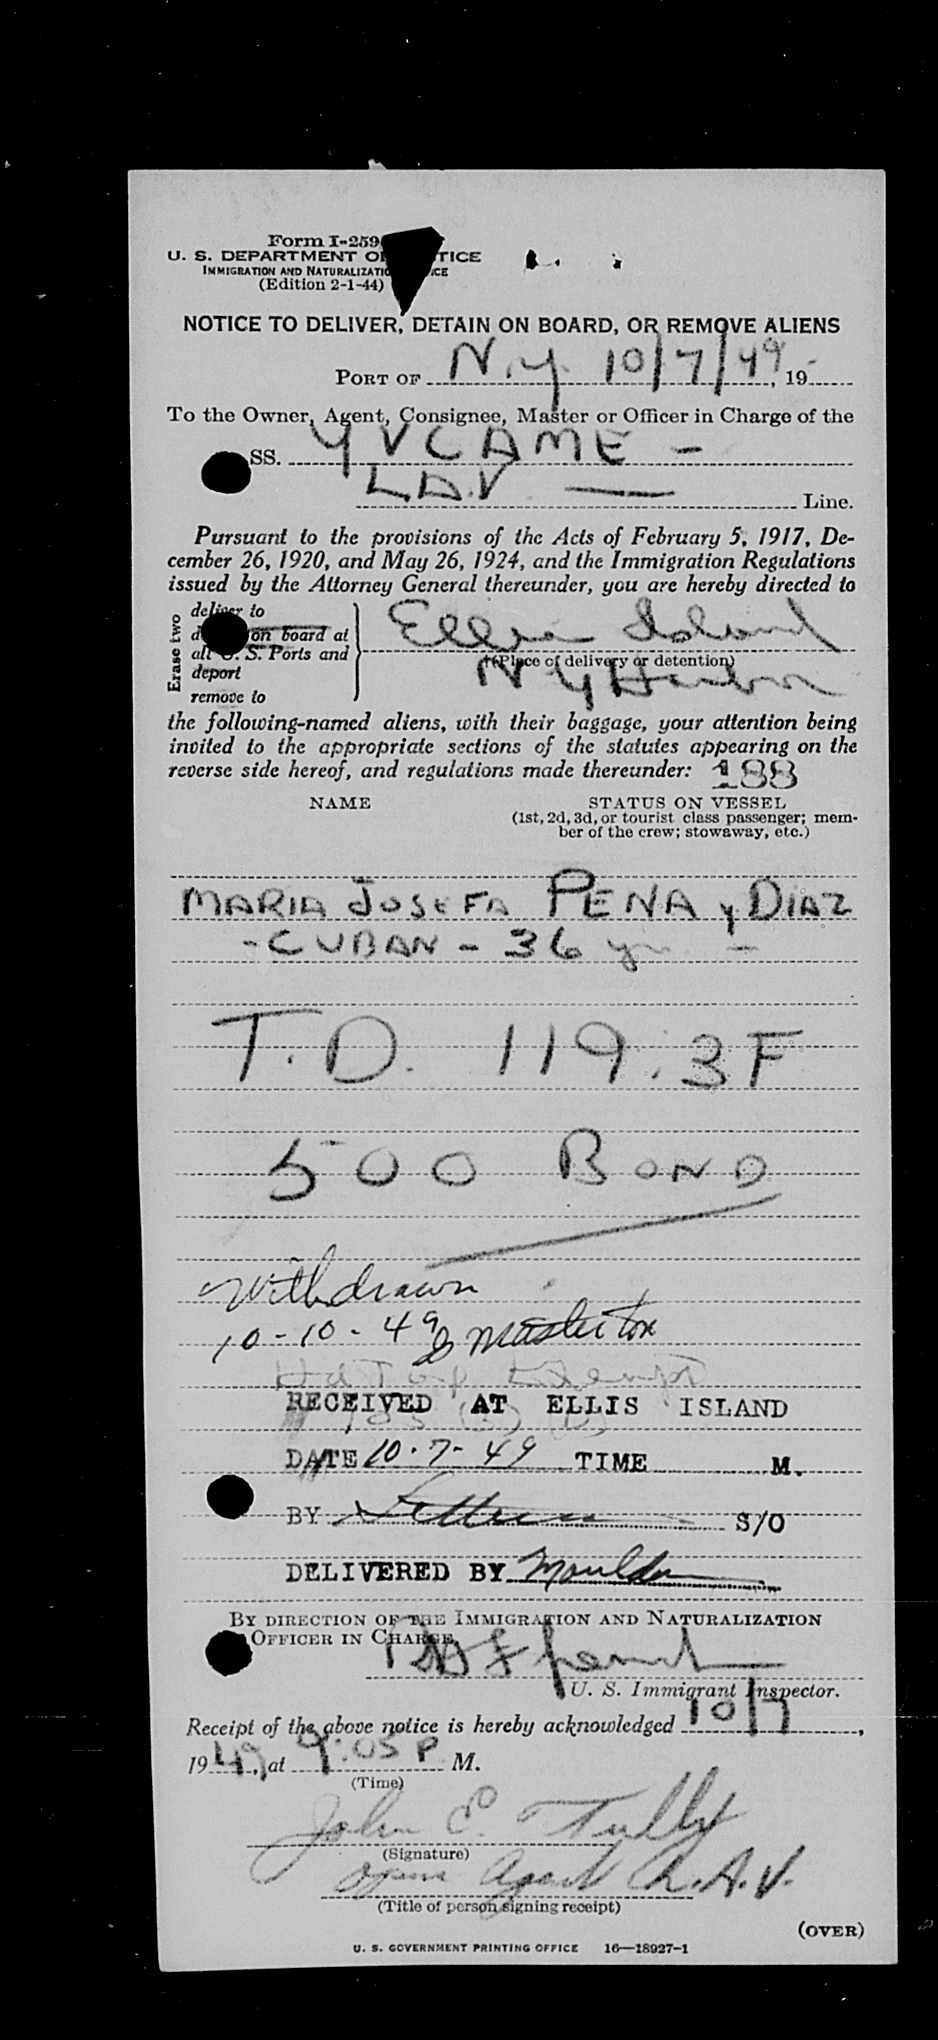 Form I-259
U. S. DEPARTMENT OF JUSTICE
IMMIGRATION AND NATURALIZATION SERVICE
(Edition 2-1-44)
NOTICE TO DELIVER, DETAIN ON BOARD, OR REMOVE ALIENS
PORT OF N.Y. 10/7/49, 19
To the Owner, Agent, Consignee, Master or Officer in Charge of the
SS. YVCAME -
L.A.V — Line.
Pursuant to the provisions of the Acts of February 5, 1917, De-
cember 26, 1920, and May 26, 1924, and the Immigration Regulations
issued by the Attorney General thereunder, you are hereby directed to
Erase two
deliver to
on board at
all U. S. Ports and
deport
remove to
Ellis Island
(Place of delivery or detention)
N Y Harbor
the following-named aliens, with their baggage, your attention being
invited to the appropriate sections of the statutes appearing on the
reverse side hereof, and regulations made thereunder: 188
NAME STATUS ON VESSEL
(1st, 2d, 3d, or tourist class passenger; mem-
ber of the crew; stowaway, etc.)
MARIA JOSEFA PENA y DIAZ
- CUBAN - 36 yr -
T.D. 119.3F
500 BOND
Withdrawn
10-10-49
RECEIVED AT ELLIS ISLAND
DATE 10-7-49 TIME M.
BY S/O
DELIVERED BY
BY DIRECTION OF THE IMMIGRATION AND NATURALIZATION
OFFICER IN CHARGE
U. S. Immigrant Inspector.
Receipt of the above notice is hereby acknowledged 10/7,
1949, at 9:05 P M.
(Time)
John E. Tully
(Signature)
Agent L.A.V.
(Title of person signing receipt)
(OVER)
U. S. GOVERNMENT PRINTING OFFICE 16—18927-1